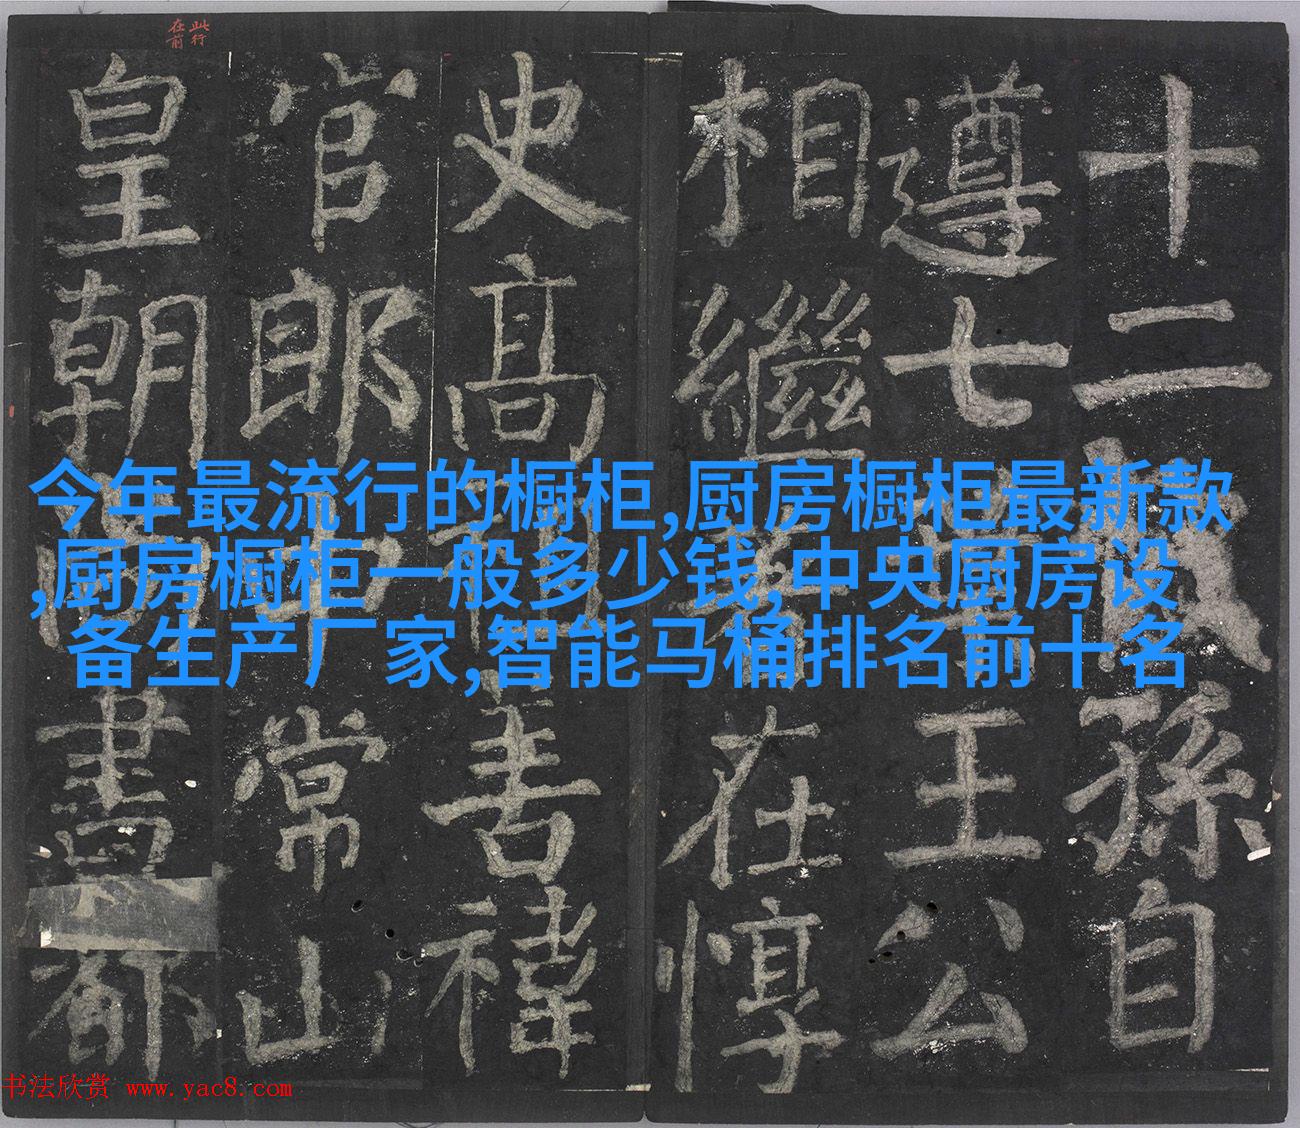 此行
在前
十二孫自
遵七王公
相繼在惇
史高善禕
官郎中常山
皇朝書都
今年最流行的橱柜,厨房橱柜最新款
,厨房橱柜一般多少钱,中央厨房设
备生产厂家,智能马桶排名前十名
书法欣赏 www.yac8.com